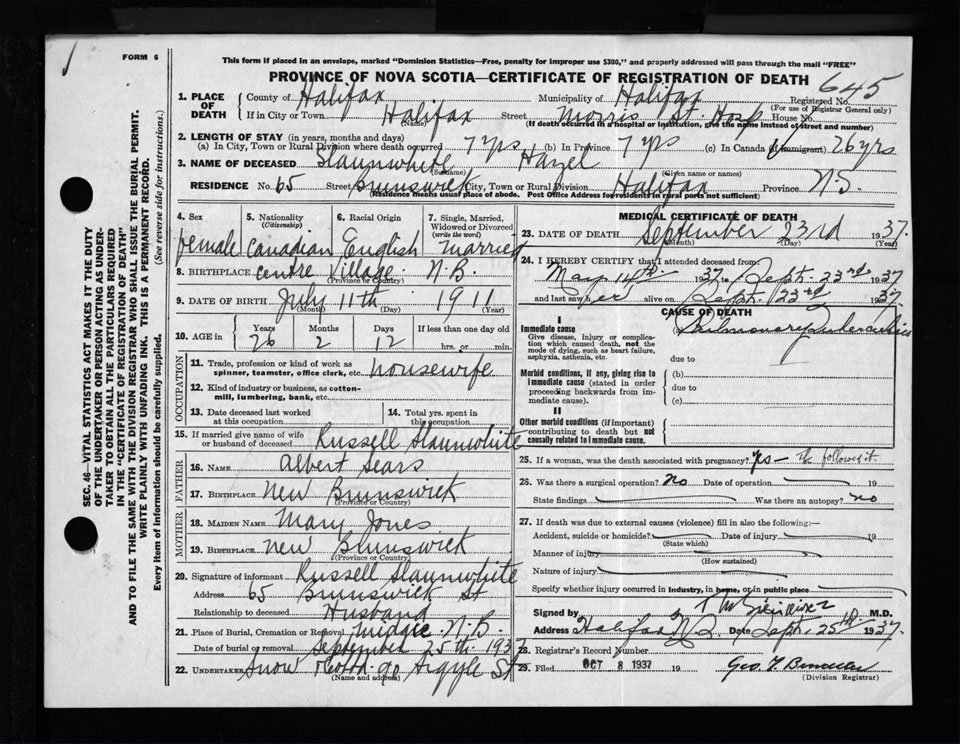 FORM 6
This form if placed in an envelope, marked "Dominion Statistics—Free, penalty for improper use $300," and properly addressed will pass through the mail "FREE"
PROVINCE OF NOVA SCOTIA—CERTIFICATE OF REGISTRATION OF DEATH
645
1. PLACE OF DEATH
County of Halifax Municipality of Halifax Registered No.
(For use of Registrar General only)
If in City or Town Halifax Street Morris St. Hosp House No.
(Name) (If death occurred in a hospital or institution, give the name instead of street and number)
2. LENGTH OF STAY (in years, months and days)
(a) In City, Town or Rural Division where death occurred 7 yrs (b) In Province 7 yrs (c) In Canada (if immigrant) 26 yrs
3. NAME OF DECEASED Slaunwhite Hazel
(Surname) (Given name or names)
RESIDENCE No. 65 Street Brunswick City, Town or Rural Division Halifax Province N.S.
(Residence means usual place of abode. Post Office Address for residents in rural parts not sufficient)
4. Sex
female
5. Nationality (Citizenship)
Canadian
6. Racial Origin
English
7. Single, Married, Widowed or Divorced (write the word)
married
8. BIRTHPLACE Centre Village. N.B.
(Province or Country)
9. DATE OF BIRTH July 11th 1911
(Month) (Day) (Year)
10. AGE in Years 26 Months 2 Days 12 If less than one day old
hrs. or min.
OCCUPATION
11. Trade, profession or kind of work as spinner, teamster, office clerk, etc. housewife
12. Kind of industry or business, as cotton-mill, lumbering, bank, etc.
13. Date deceased last worked at this occupation
14. Total yrs. spent in this occupation
15. If married give name of wife or husband of deceased Russell Slaunwhite
FATHER
16. NAME Albert Sears
17. BIRTHPLACE New Brunswick
(Province or Country)
MOTHER
18. MAIDEN NAME Mary Jones
19. BIRTHPLACE New Brunswick
(Province or Country)
20. Signature of informant Russell Slaunwhite
Address 65 Brunswick St
Relationship to deceased Husband
21. Place of Burial, Cremation or Removal N.B.
Date of burial or removal September 25th 1937
22. UNDERTAKER Snow 90 Argyle St
(Name and address)
MEDICAL CERTIFICATE OF DEATH
23. DATE OF DEATH September 23rd 1937.
(Month) (Day) (Year)
24. I HEREBY CERTIFY that I attended deceased from
May 14th 1937 to Sept. 23rd 1937
and last saw her alive on Sept. 22rd 1937.
CAUSE OF DEATH
I
Immediate cause Pulmonary Tuberculosis
Give disease, injury or complication which caused death, not the mode of dying, such as heart failure, asphyxia, asthenia, etc.
due to
Morbid conditions, if any, giving rise to immediate cause (stated in order proceeding backwards from immediate cause).
(b)
due to
(c)
II
Other morbid conditions (if important) contributing to death but not causally related to immediate cause.
25. If a woman, was the death associated with pregnancy? Yes — The followed it.
26. Was there a surgical operation? No Date of operation 19
State findings Was there an autopsy? no
27. If death was due to external causes (violence) fill in also the following:—
Accident, suicide or homicide? Date of injury 19
(State which)
Manner of injury
(How sustained)
Nature of injury
Specify whether injury occurred in industry, in home, or in public place
Signed by M.D.
Address Halifax N.S. Date Sept. 25th 1937.
28. Registrar's Record Number
29. Filed OCT 8 1937 19
(Division Registrar)
SEC. 46—VITAL STATISTICS ACT MAKES IT THE DUTY
OF THE UNDERTAKER OR PERSON ACTING AS UNDER-
TAKER TO OBTAIN ALL THE PARTICULARS REQUIRED
IN THE "CERTIFICATE OF REGISTRATION OF DEATH"
AND TO FILE THE SAME WITH THE DIVISION REGISTRAR WHO SHALL ISSUE THE BURIAL PERMIT.
WRITE PLAINLY WITH UNFADING INK. THIS IS A PERMANENT RECORD.
Every item of information should be carefully supplied. (See reverse side for instructions.)